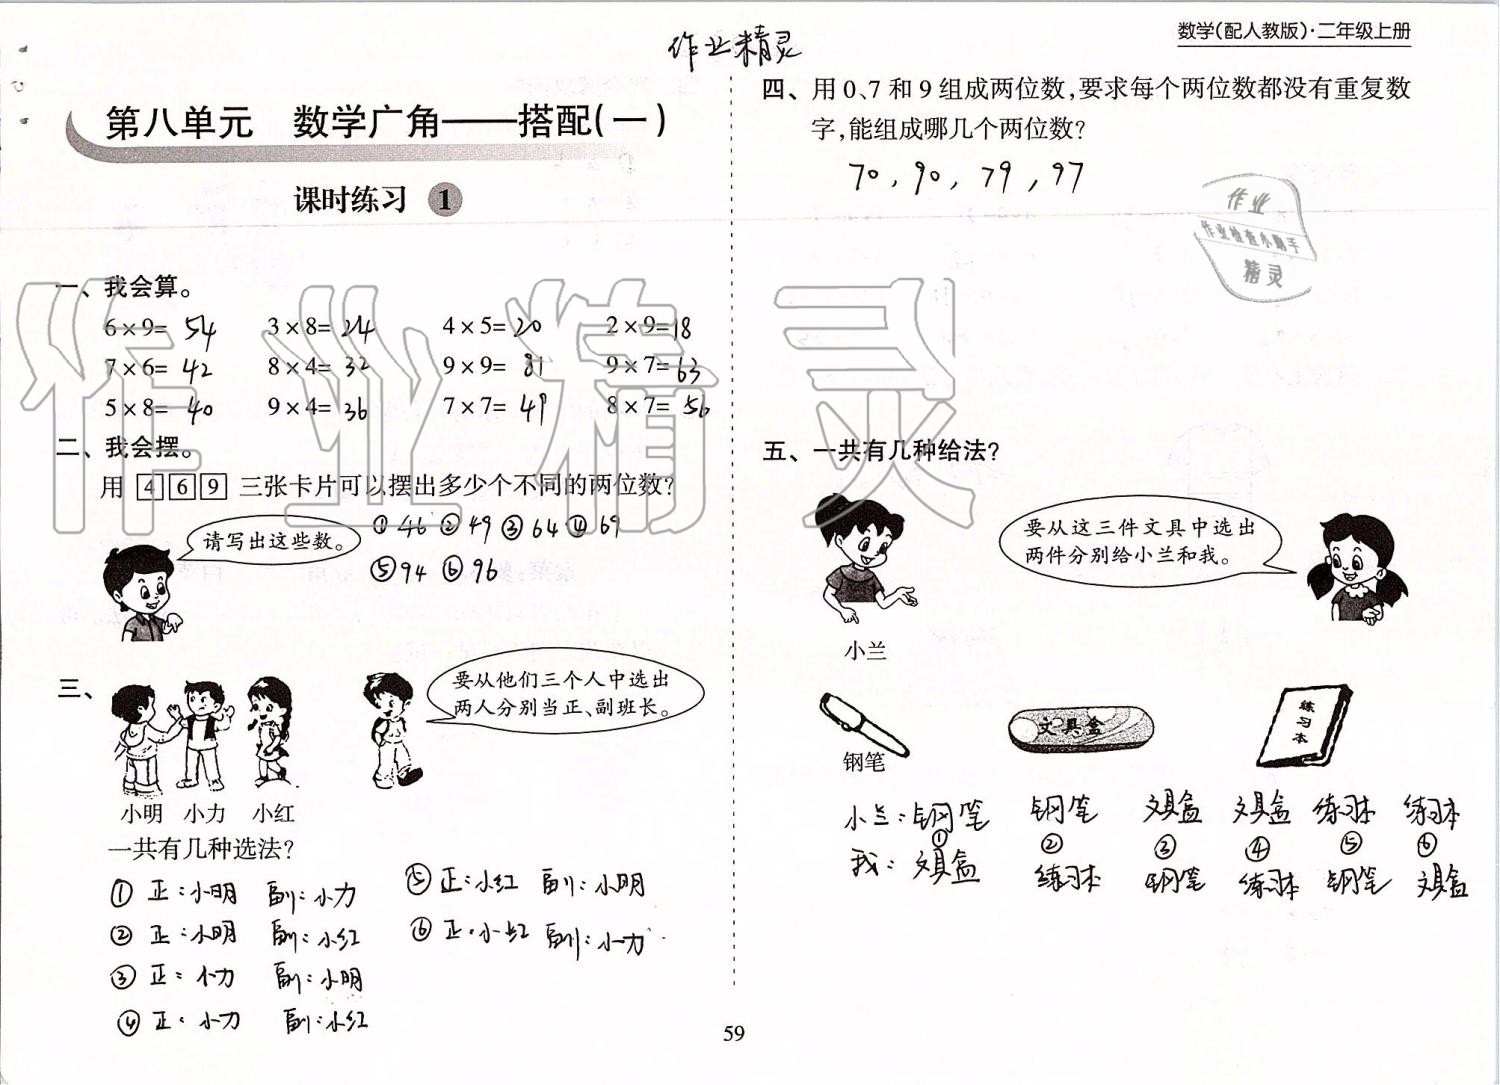 数学(配人教版)·二年级上册
作业精灵
第八单元 数学广角——搭配(一)
课时练习 1
一、我会算。
6×9= 54 3×8= 24 4×5= 20 2×9= 18
7×6= 42 8×4= 32 9×9= 81 9×7= 63
5×8= 40 9×4= 36 7×7= 49 8×7= 56
二、我会摆。
用 4 6 9 三张卡片可以摆出多少个不同的两位数?
请写出这些数。
①46 ②49 ③64 ④69
⑤94 ⑥96
三、
要从他们三个人中选出
两人分别当正、副班长。
小明 小力 小红
一共有几种选法?
① 正:小明 副:小力
② 正:小明 副:小红
③ 正:小力 副:小明
④ 正:小力 副:小红
⑤ 正:小红 副:小明
⑥ 正:小红 副:小力
四、用 0、7 和 9 组成两位数,要求每个两位数都没有重复数
字,能组成哪几个两位数?
70, 90, 79, 97
作业
作业检查小助手
精灵
五、一共有几种给法?
要从这三件文具中选出
两件分别给小兰和我。
小兰
文具盒
练习本
钢笔
小兰:钢笔 钢笔 文具盒 文具盒 练习本 练习本
① ② ③ ④ ⑤ ⑥
我:文具盒 练习本 钢笔 练习本 钢笔 文具盒
59
作业精灵